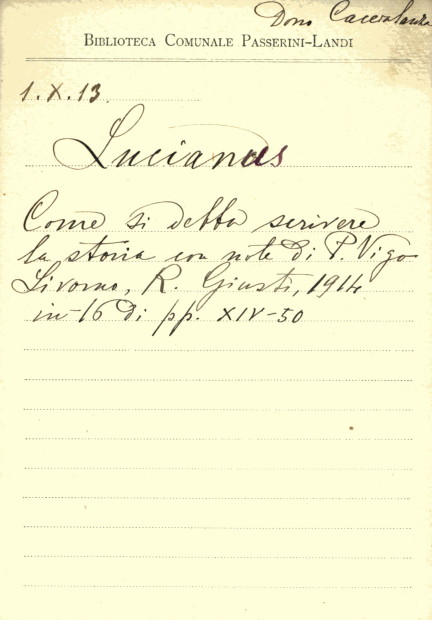 Dono
BIBLIOTECA COMUNALE PASSERINI-LANDI
1.X.13
Lucianus
Come si debba scrivere
la storia con note di P. Vigo
Livorno, R. Giusti, 1914
in-16 di pp. XIV-50